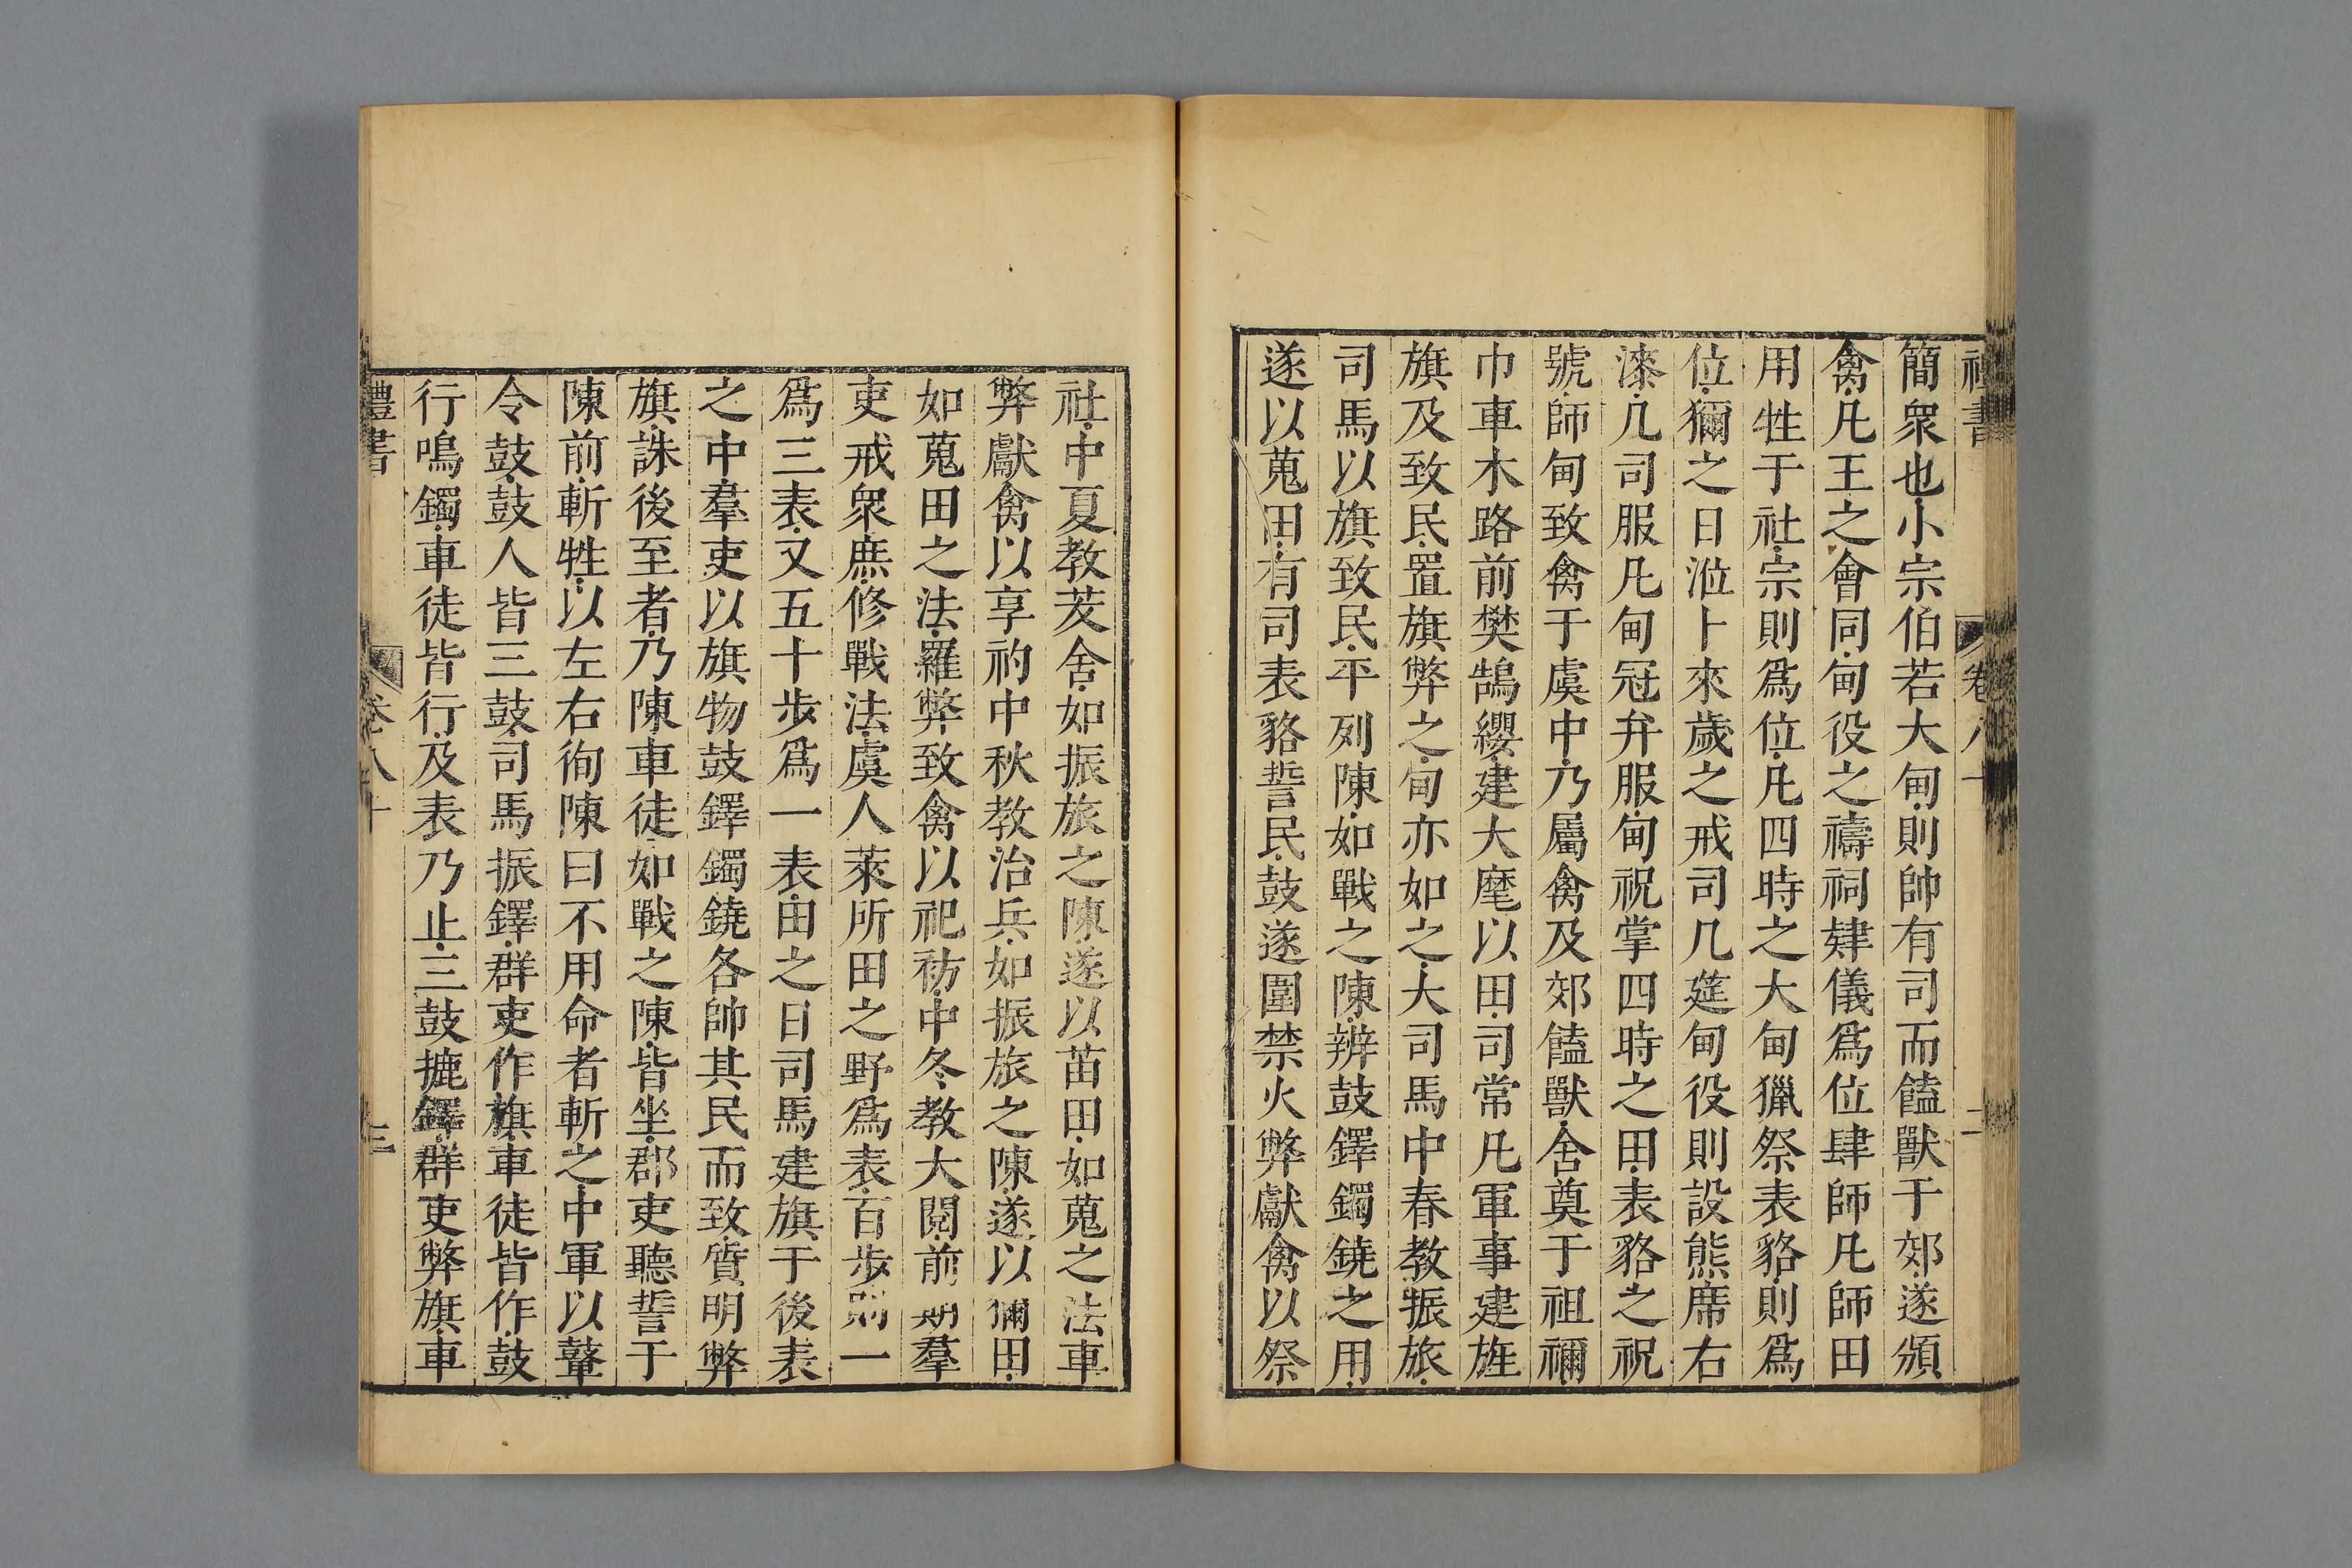 禮書 卷八十 二
簡衆也小宗伯若大甸則帥有司而饁獸于郊遂頒
禽凡王之會同甸役之禱祠肄儀爲位肆師凡師田
用牲于社宗則爲位凡四時之大甸獵祭表貉則爲
位獮之日涖卜來歲之戒司几筵甸役則設熊席右
漆几司服凡甸冠弁服甸祝掌四時之田表貉之祝
號師甸致禽于虞中乃屬禽及郊饁獸舍奠于祖禰
巾車木路前樊鵠纓建大麾以田司常凡軍事建旌
旗及致民置旗弊之甸亦如之大司馬中春教振旅
司馬以旗致民平列陳如戰之陳辨鼓鐸鐲鐃之用
遂以蒐田有司表貉誓民鼓遂圍禁火弊獻禽以祭
社中夏教茇舍如振旅之陳遂以苗田如蒐之法車
弊獻禽以享礿中秋教治兵如振旅之陳遂以獮田
如蒐田之法羅弊致禽以祀祊中冬教大閱前期羣
吏戒衆庶修戰法虞人萊所田之野爲表百步則一
爲三表又五十步爲一表田之日司馬建旗于後表
之中羣吏以旗物鼓鐸鐲鐃各帥其民而致質明弊
旗誅後至者乃陳車徒如戰之陳皆坐郡吏聽誓于
陳前斬牲以左右徇陳曰不用命者斬之中軍以鼙
令鼓鼓人皆三鼓司馬振鐸群吏作旗車徒皆作鼓
行鳴鐲車徒皆行及表乃止三鼓摝鐸群吏弊旗車
禮書 卷八十 三